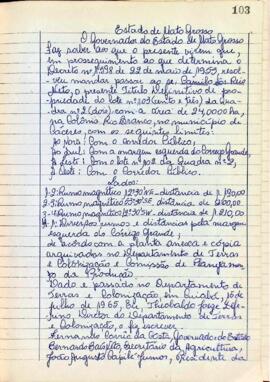 103
Estado de Mato Grosso
O Governador do Estado de Mato Grosso
faz saber aos que o presente virem que,
em prosseguimento ao que determina o
Decreto nº 598 de 22 de maio de 1959, resol-
veu mandar passar ao sr. Camilo dos Reis
Neto, o presente Titulo Definitivo de pro-
priedade do lote nº 103 (cento e três) da Qua-
dra nº 2 (dois) com a área de 24,0000 ha,
na Colônia Rio Branco, no município de
Cáceres, com os seguintes limites:
Ao Norte: Com o Corredor Público;
Ao Sul: Com a margem esquerda do Corrego Grande;
A Leste: Com o lote nº 102 da Quadra nº 2;
A Oeste: Com o Corredor Público.
Lados:
1-2: Rumo magnético - distancia de 1.190,00
2-3: Rumo magnético - distancia de 200,00
3-4: Rumo magnético - distancia de 1.210,00
4-1: Diversos rumos e distancia pela margem
esquerda do Corrego Grande;
de acordo com a planta anexa e cópia
arquivadas no Departamento de Terras
e Colonização e Comissão de Planejamen-
to da Produção.
Dado e passado no Departamento de
Terras e Colonização, em Cuiabá, 16 de
julho de 1965. Eu, Theobaldo Jorge
Diretor do Departamento de Terras
e Colonização, o fiz escrever.
Fernando Corrêa da Costa, Governador do Estado
Bernardo Baís Neto, Secretário da Agricultura,
João Augusto Capilé Junior, Presidente da